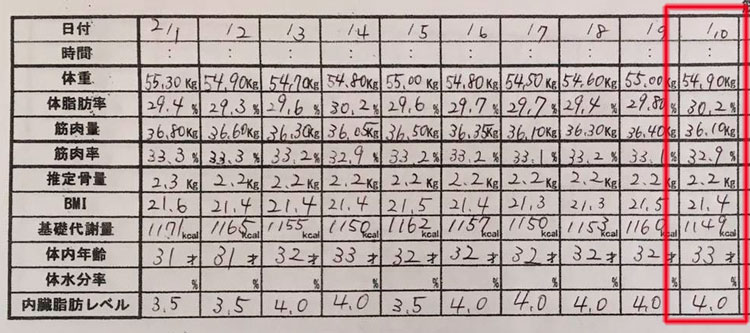 日付 2/1 /2 /3 /4 /5 /6 /7 /8 /9 /10
時間 : : : : : : : : : :
体重 55.30Kg 54.90Kg 54.70Kg 54.80Kg 55.00Kg 54.80Kg 54.50Kg 54.60Kg 55.00Kg 54.90Kg
体脂肪率 29.4% 29.3% 29.6% 30.2% 29.6% 29.7% 29.7% 29.4% 29.8% 30.2%
筋肉量 36.80Kg 36.60Kg 36.30Kg 36.05Kg 36.50Kg 36.35Kg 36.10Kg 36.30Kg 36.40Kg 36.10Kg
筋肉率 33.3% 33.3% 33.2% 32.9% 33.2% 33.2% 33.1% 33.2% 33.1% 32.9%
推定骨量 2.3Kg 2.2Kg 2.2Kg 2.2Kg 2.2Kg 2.2Kg 2.2Kg 2.2Kg 2.2Kg 2.2Kg
BMI 21.6 21.4 21.4 21.4 21.5 21.4 21.3 21.3 21.5 21.4
基礎代謝量 1171kcal 1165kcal 1155kcal 1150kcal 1162kcal 1157kcal 1150kcal 1153kcal 1160kcal 1149kcal
体内年齢 31才 31才 32才 33才 32才 32才 32才 32才 32才 33才
体水分率 % % % % % % % % % %
内臓脂肪レベル 3.5 3.5 4.0 4.0 3.5 4.0 4.0 4.0 4.0 4.0